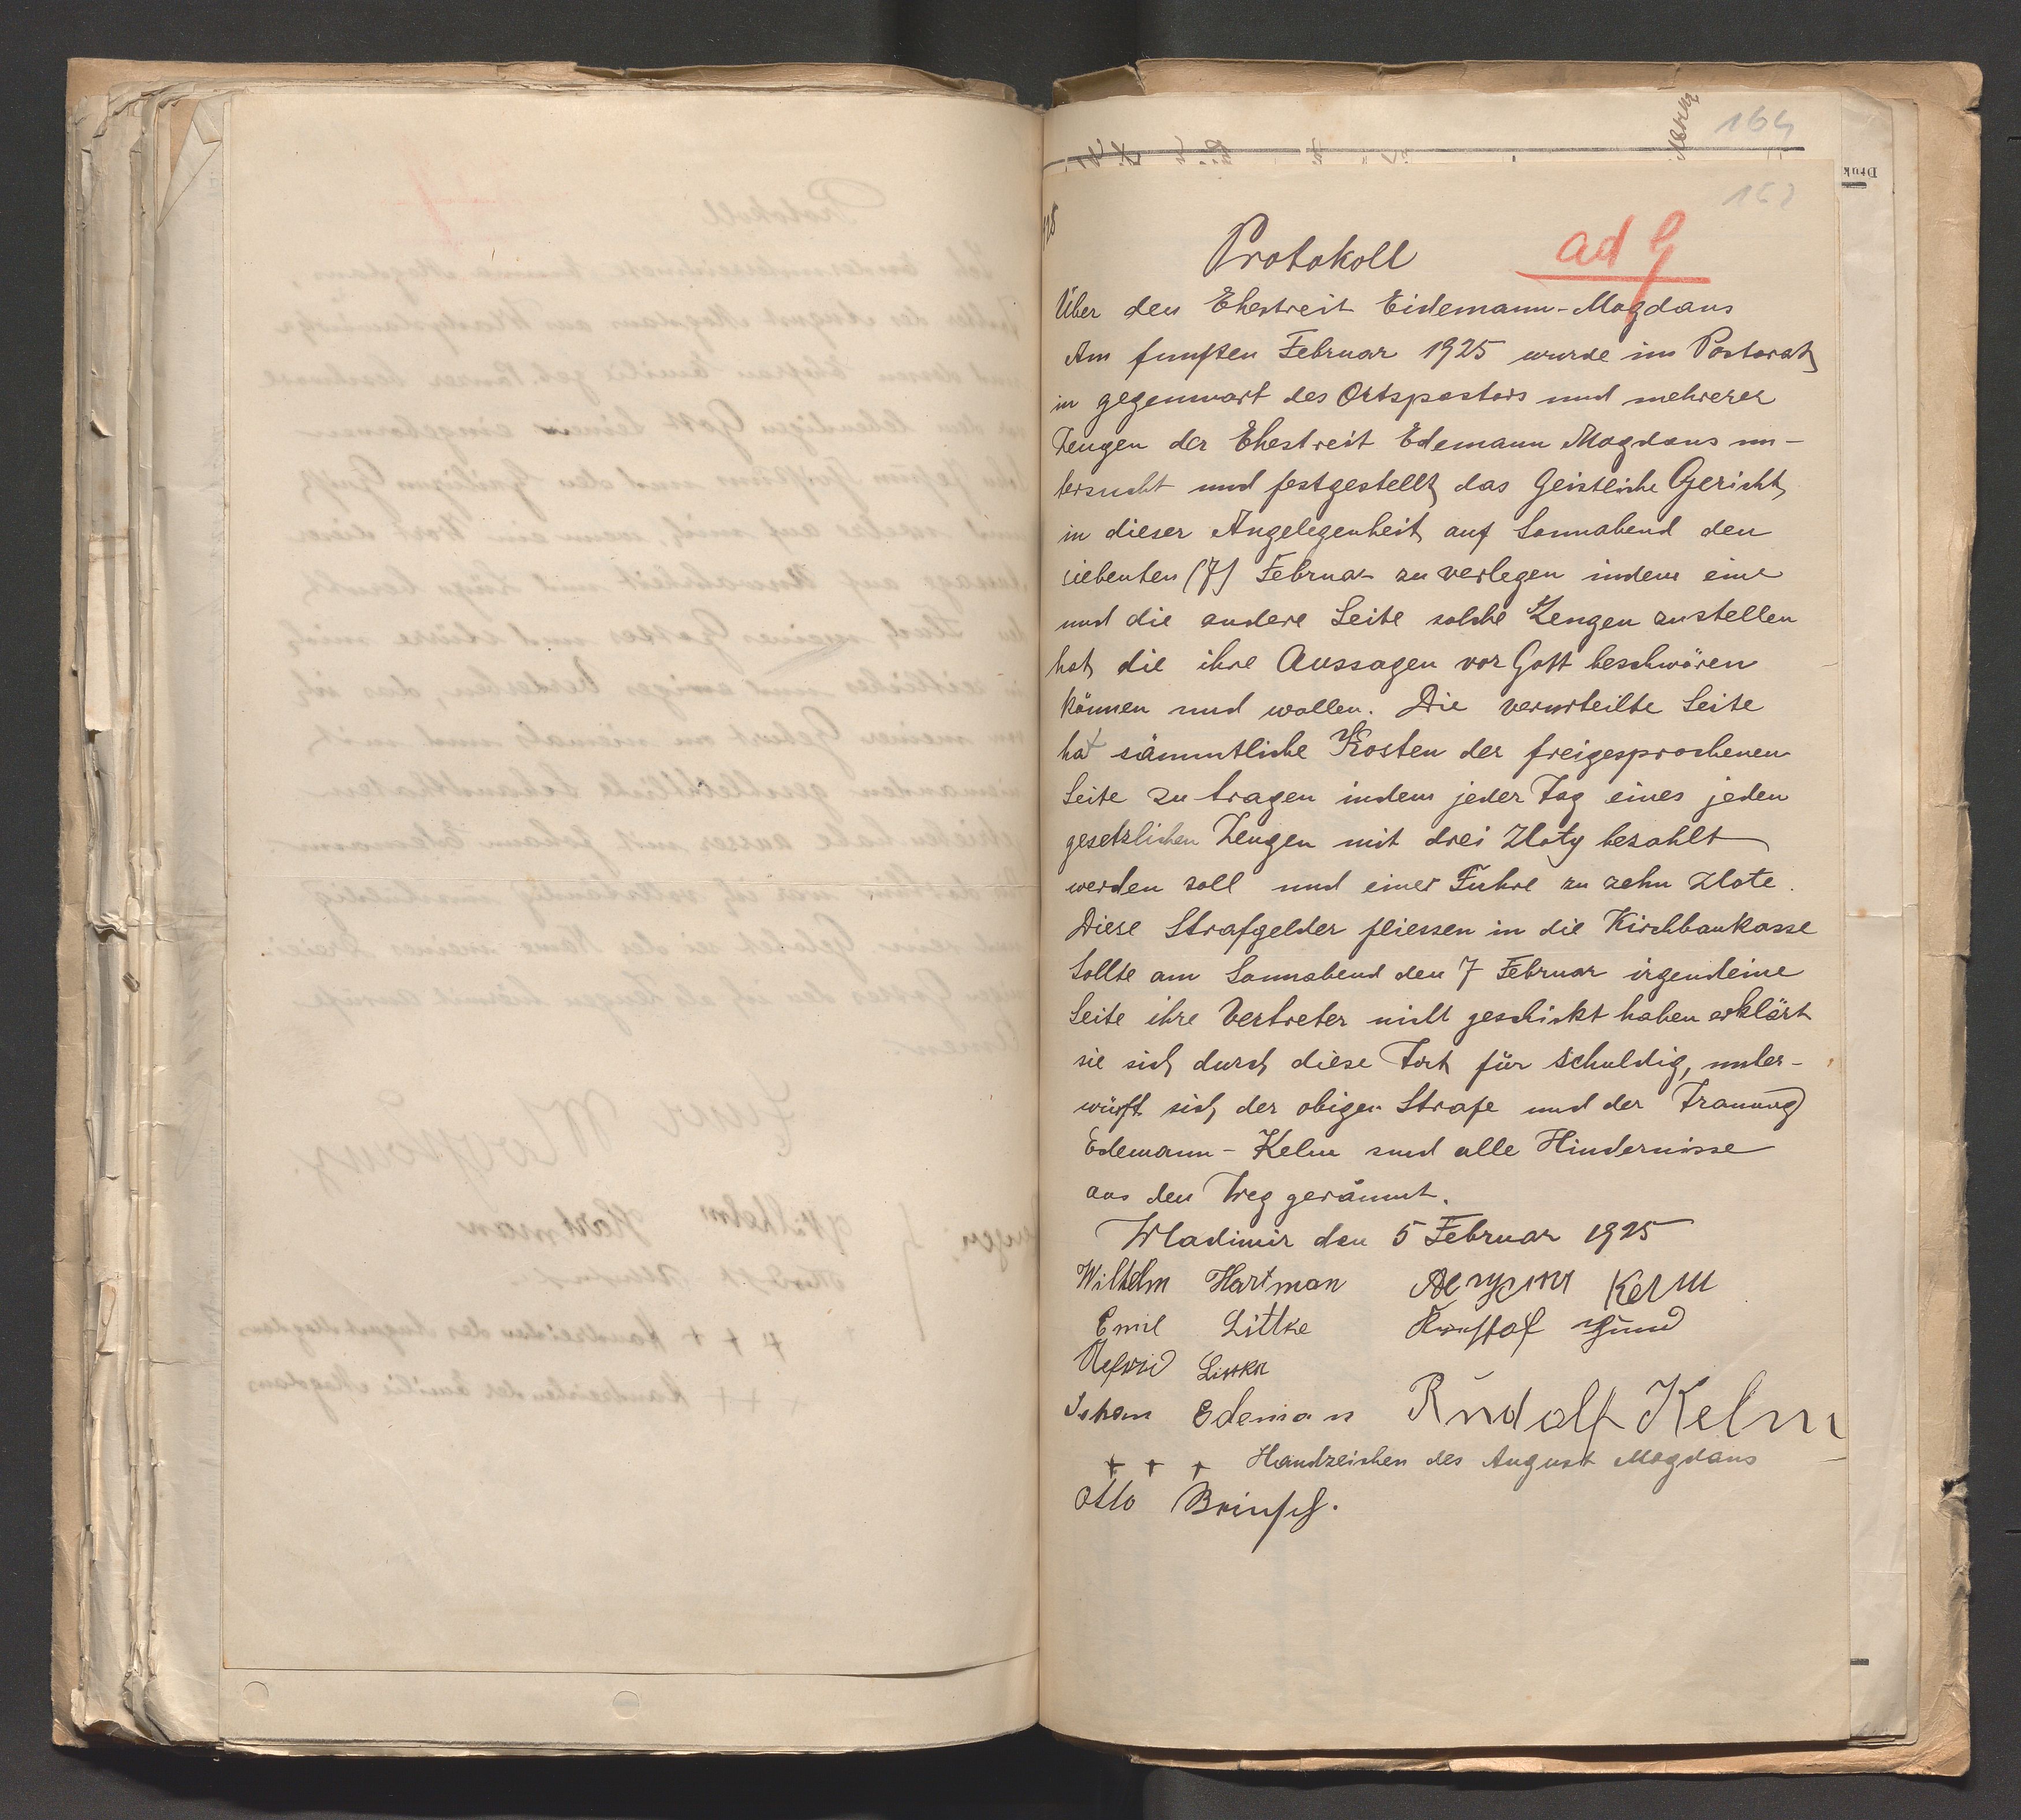 164
Druk
162
Protokoll
ad G
Über den Ehestreit Eidemann-Magdans
Am funften Februar 1925 wurde im Pastorat
in gegenwart des Ortspastors und mehrerer
Zeugen der Ehestreit Edemann Magdans un-
tersucht und festgestellt das Geistliche Gericht
in dieser Angelegenheit auf Sonnabend den
siebenten (7) Februar zu verlegen indem eine
und die andere Seite solche Zeugen zustellen
hat die ihre Aussagen vor Gott beschwören
können und wollen. Die verurteilte Seite
hat sämmtliche Kosten der freigesprochenen
Seite zu tragen indem jeder Tag eines jeden
gesetzlichen Zeugen mit drei Zloty bezahlt
werden soll und einer Fuhre zu zehn Zlote.
Diese Strafgelder fliessen in die Kirchbaukasse
Sollte am Sonnabend den 7 Februar irgendeine
Seite ihre Vertreter nicht geschikt haben erklärt
sie sich durch diese für schuldig, unter-
würft sich der obigen Strafe und der Trauung
Edemann - Kelm sind alle Hindernisse
aus den Weg geräumt.
Wladimir den 5 Februar 1925
Wilhelm Hartman Kelm
Emil Littke
Edeman Rudolf Kelm
+ + + Handzeichen des August Magdans
Otto